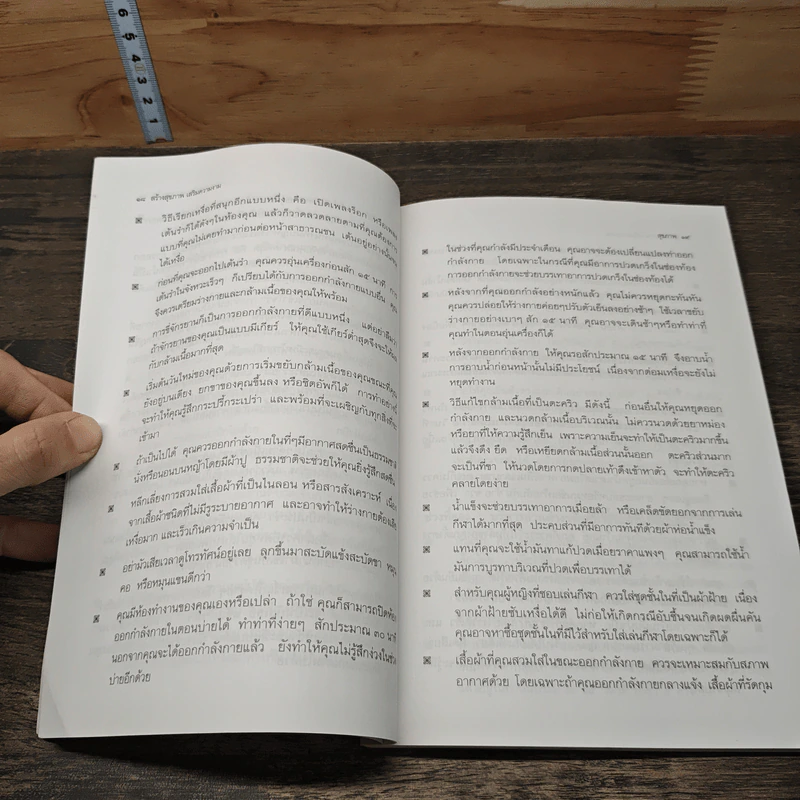 6 5 4 3 2 1
๑๘ สร้างสุขภาพ เสริมความงาม
วิธีเรียกเหงื่อที่สนุกอีกแบบหนึ่ง คือ เปิดเพลงร็อก หรือเพลง
เต้นรำก็ได้ดังๆในห้องคุณ แล้วก็วาดลวดลายตามที่คุณต้องการ
แบบที่คุณไม่เคยทำมาก่อนต่อหน้าสาธารณชน เต้นอยู่อย่างนั้นจน
ได้เหงื่อ
ก่อนที่คุณจะออกไปเต้นรำ คุณควรอุ่นเครื่องก่อนสัก ๑๕ นาที
เต้นรำในจังหวะเร็วๆ ก็เปรียบได้กับการออกกำลังกายแบบอื่น คุณ
จึงควรเตรียมร่างกายและกล้ามเนื้อของคุณให้พร้อม
การขี่จักรยานก็เป็นการออกกำลังกายที่ดีแบบหนึ่ง แต่อย่าลืมว่า
ถ้าจักรยานของคุณเป็นแบบมีเกียร์ ให้คุณใช้เกียร์ต่ำสุดจึงจะได้ผล
กับกล้ามเนื้อมากที่สุด
เริ่มต้นวันใหม่ของคุณด้วยการเริ่มขยับกล้ามเนื้อของคุณขณะที่คุณ
ยังอยู่บนเตียง ยกขาของคุณขึ้นลง หรือซิตอัพก็ได้ การทำอย่างนี้
จะทำให้คุณรู้สึกกระปรี้กระเปร่า และพร้อมที่จะเผชิญกับทุกสิ่งที่จะ
เข้ามา
ถ้าเป็นไปได้ คุณควรออกกำลังกายในที่ๆมีอากาศสดชื่นเป็นธรรมชาติ
นั่งหรือนอนบนหญ้าโดยมีผ้าปู ธรรมชาติจะช่วยให้คุณยิ่งรู้สึกสดชื่น
หลีกเลี่ยงการสวมใส่เสื้อผ้าที่เป็นไนลอน หรือสารสังเคราะห์ เนื่อง
จากเสื้อผ้าชนิดที่ไม่มีรูระบายอากาศ และอาจทำให้ร่างกายต้องเสีย
เหงื่อมาก และเร็วเกินความจำเป็น
อย่ามัวเสียเวลาดูโทรทัศน์อยู่เลย ลุกขึ้นมาสะบัดแข้งสะบัดขา หมุน
คอ หรือหมุนแขนดีกว่า
คุณมีห้องทำงานของคุณเองหรือเปล่า ถ้าใช่ คุณก็สามารถปิดห้อง
ออกกำลังกายในตอนบ่ายได้ ทำท่าที่ง่ายๆ สักประมาณ ๓๐ นาที
นอกจากคุณจะได้ออกกำลังกายแล้ว ยังทำให้คุณไม่รู้สึกง่วงในช่วง
บ่ายอีกด้วย
สุขภาพ ๑๙
ในช่วงที่คุณกำลังมีประจำเดือน คุณอาจจะต้องเปลี่ยนแปลงท่าออก
กำลังกาย โดยเฉพาะในกรณีที่คุณมีอาการปวดเกร็งในช่องท้อง
การออกกำลังกายจะช่วยบรรเทาอาการปวดเกร็งในช่องท้องได้
หลังจากที่คุณออกกำลังอย่างหนักแล้ว คุณไม่ควรหยุดกะทันหัน
คุณควรปล่อยให้ร่างกายค่อยๆปรับตัวเย็นลงอย่างช้าๆ ใช้เวลาขยับ
ร่างกายอย่างเบาๆ สัก ๑๕ นาที คุณอาจจะเดินช้าๆหรือทำท่าที่
คุณทำในตอนอุ่นเครื่องก็ได้
หลังจากออกกำลังกาย ให้คุณรอสักประมาณ ๑๕ นาที จึงอาบน้ำ
การอาบน้ำก่อนหน้านั้นไม่มีประโยชน์ เนื่องจากต่อมเหงื่อจะยังไม่
หยุดทำงาน
วิธีแก้ไขกล้ามเนื้อที่เป็นตะคริว มีดังนี้ ก่อนอื่นให้คุณหยุดออก
กำลังกาย และนวดกล้ามเนื้อบริเวณนั้น ไม่ควรนวดด้วยยาหม่อง
หรือยาที่ให้ความรู้สึกเย็น เพราะความเย็นจะทำให้เป็นตะคริวมากขึ้น
แล้วจึงดึง ยืด หรือเหยียดกล้ามเนื้อส่วนนั้นออก ตะคริวส่วนมาก
จะเป็นที่ขา ให้นวดโดยการกดปลายเท้าดึงเข้าหาตัว จะทำให้ตะคริว
คลายโดยง่าย
น้ำแข็งจะช่วยบรรเทาอาการเมื่อยล้า หรือเคล็ดขัดยอกจากการเล่น
กีฬาได้มากที่สุด ประคบส่วนที่มีอาการทันทีด้วยผ้าห่อน้ำแข็ง
แทนที่คุณจะใช้น้ำมันทาแก้ปวดเมื่อยราคาแพงๆ คุณสามารถใช้น้ำ
มันการบูรทาบริเวณที่ปวดเพื่อบรรเทาได้
สำหรับคุณผู้หญิงที่ชอบเล่นกีฬา ควรใส่ชุดชั้นในที่เป็นผ้าฝ้าย เนื่อง
จากผ้าฝ้ายซับเหงื่อได้ดี ไม่ก่อให้เกิดกรณีอับชื้นจนเกิดผดผื่นคัน
คุณอาจหาซื้อชุดชั้นในที่มีไว้สำหรับใส่เล่นกีฬาโดยเฉพาะก็ได้
เสื้อผ้าที่คุณสวมใส่ในขณะออกกำลังกาย ควรจะเหมาะสมกับสภาพ
อากาศด้วย โดยเฉพาะถ้าคุณออกกำลังกายกลางแจ้ง เสื้อผ้าที่รัดกุม